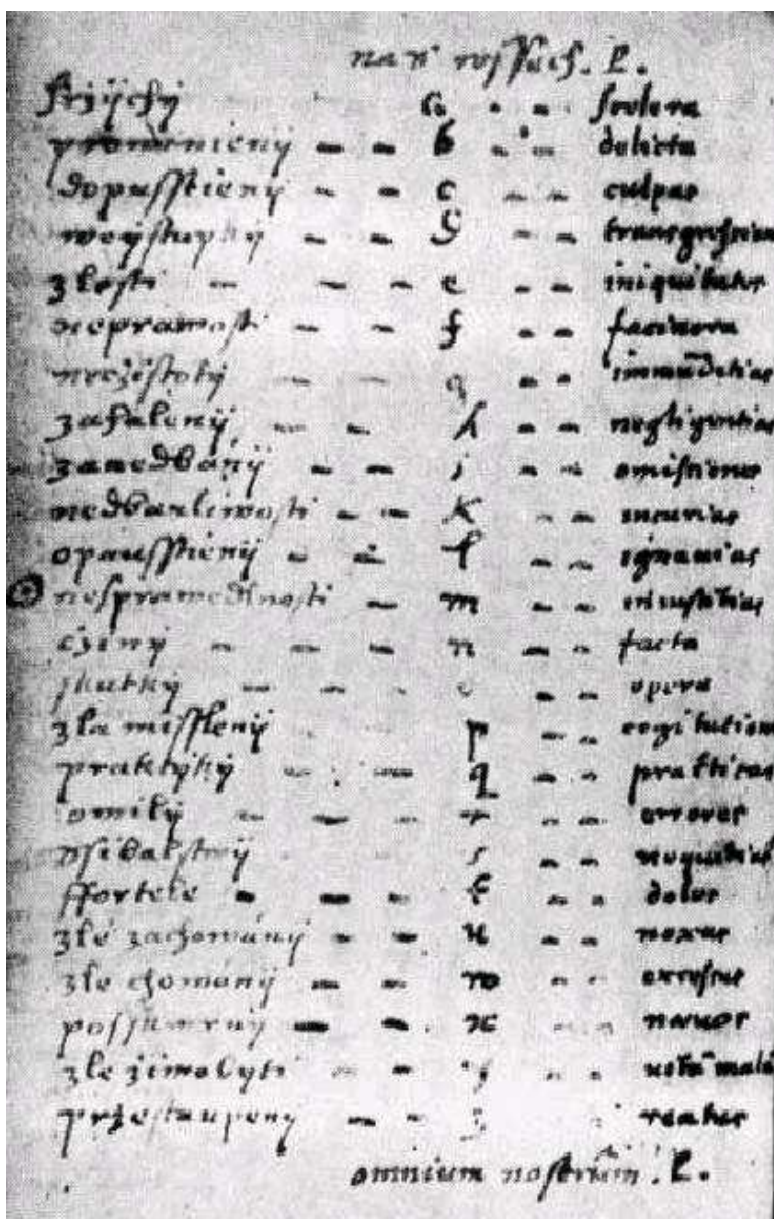 nas wssech. L.
hrzijchy a scelera
promienienij b delicta
dopusstienij c culpas
weystupky d transgressiones
zlosti e iniquitates
neprawosti f facinora
neczistoty g immunditias
zahalenij h negligentias
zanedbanij i omissiones
nedbanliwosti k incurias
opausstienij l ignauias
nesprawedlnosti m iniustitias
cziny n facta
skutky o opera
zla misslenij p cogitationes
praktyky q practicas
omily r errores
ssibalstwij s nequitias
ffortele t dolos
zlé zachowáný u noxas
zle chowáný w excessus
posskwrny x naeuos
zle ziwobyti y uitam malam
przestaupeny z reatus
omnium nostrum. L.